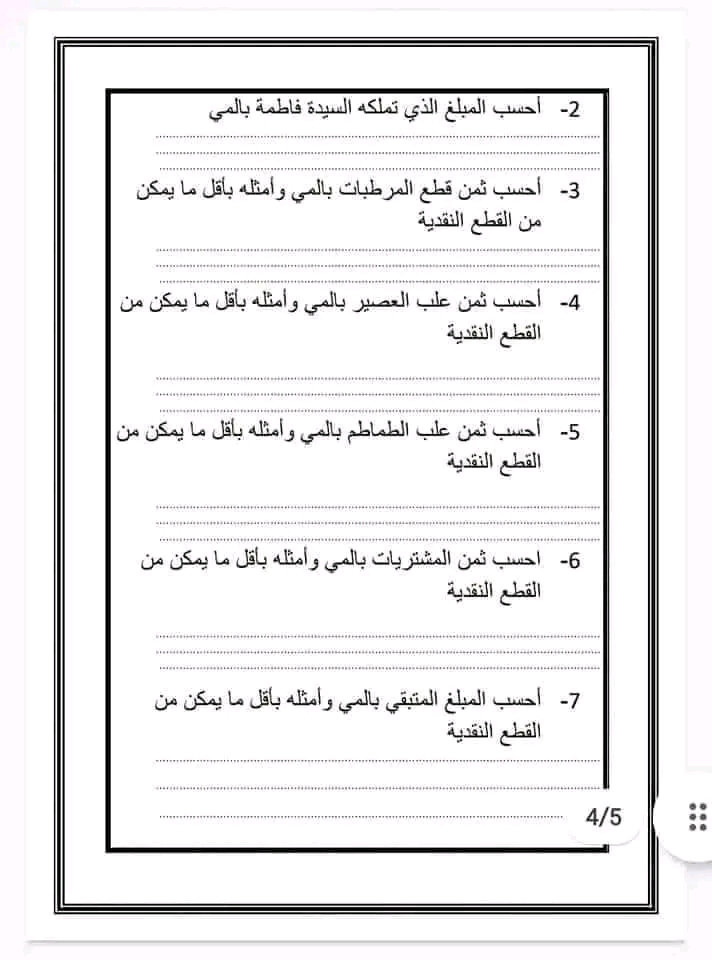 2- أحسب المبلغ الذي تملكه السيدة فاطمة بالمي
3- أحسب ثمن قطع المرطبات بالمي وأمثله بأقل ما يمكن
من القطع النقدية
4- أحسب ثمن علب العصير بالمي وأمثله بأقل ما يمكن من
القطع النقدية
5- أحسب ثمن علب الطماطم بالمي وأمثله بأقل ما يمكن من
القطع النقدية
6- احسب ثمن المشتريات بالمي وأمثله بأقل ما يمكن من
القطع النقدية
7- أحسب المبلغ المتبقي بالمي وأمثله بأقل ما يمكن من
القطع النقدية
4/5